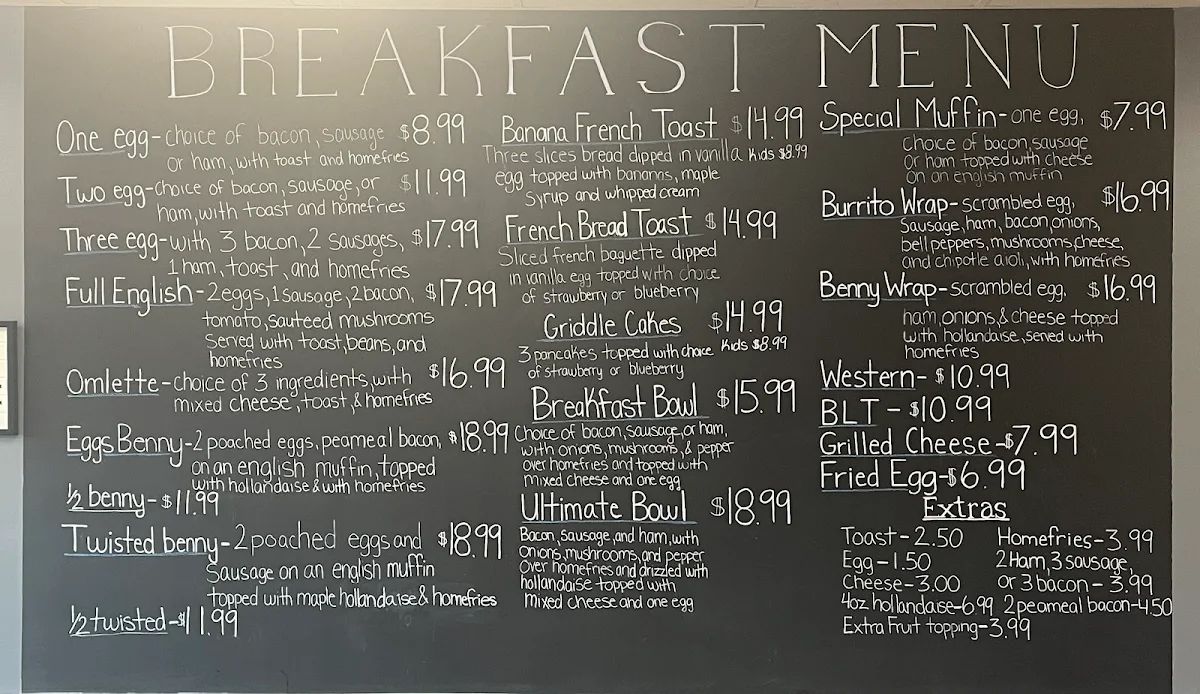 BREAKFAST MENU
One egg-choice of bacon, sausage $8.99
or ham, with toast and homefries
Two egg-choice of bacon, sausage, or $11.99
ham, with toast and homefries
Three egg-with 3 bacon, 2 sausages, $17.99
1 ham, toast, and homefries
Full English-2eggs, 1 sausage, 2 bacon, $17.99
tomato, sauteed mushrooms
Served with toast, beans, and
homefries
Omlette-choice of 3 ingredients, with $16.99
mixed cheese, toast, & homefries
Eggs Benny-2 poached eggs, peameal bacon, $18.99
on an english muffin, topped
with hollandaise & with homefries
1/2 benny-$11.99
Twisted benny-2 poached eggs and $18.99
Sausage on an english muffin
topped with maple hollandaise & homefries
1/2 twisted-$11.99
Banana French Toast $14.99
Three slices bread dipped in vanilla Kids $8.99
egg topped with bananas, maple
Syrup and whipped cream
French Bread Toast $14.99
Sliced french baguette dipped
in vanilla egg topped with choice
of strawberry or blueberry
Griddle Cakes $14.99
3 pancakes topped with choice Kids $8.99
of strawberry or blueberry
Breakfast Bowl $15.99
Choice of bacon, sausage, or ham,
with onions, mushrooms, & pepper
over homefries and topped with
mixed cheese and one egg
Ultimate Bowl $18.99
Bacon, sausage, and ham, with
onions, mushrooms, and pepper
Over homefries and drizzled with
hollandaise topped with
mixed cheese and one egg
Special Muffin-one egg, $7.99
Choice of bacon, sausage
Or ham topped with cheese
On an english muffin
Burrito Wrap-scrambled egg, $16.99
Sausage, ham, bacon, onions,
bell peppers, mushrooms, cheese,
and chipotle aioli, with homefries
Benny Wrap-scrambled egg, $16.99
ham, onions, & cheese topped
with hollandaise, served with
homefries
Western-$10.99
BLT-$10.99
Grilled Cheese-$7.99
Fried Egg-$6.99
Extras
Toast-2.50
Egg-1.50
Cheese-3.00
4oz hollandaise-6.99
Extra Fruit topping-3.99
Homefries-3.99
2 Ham, 3 sausage,
or 3 bacon-3.99
2 peameal bacon-4.50